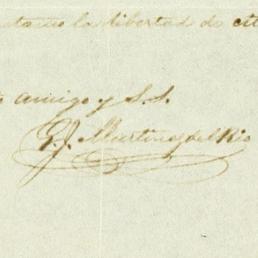 la libertad de
amigo y S. S.
G. J. Martinez del Rio